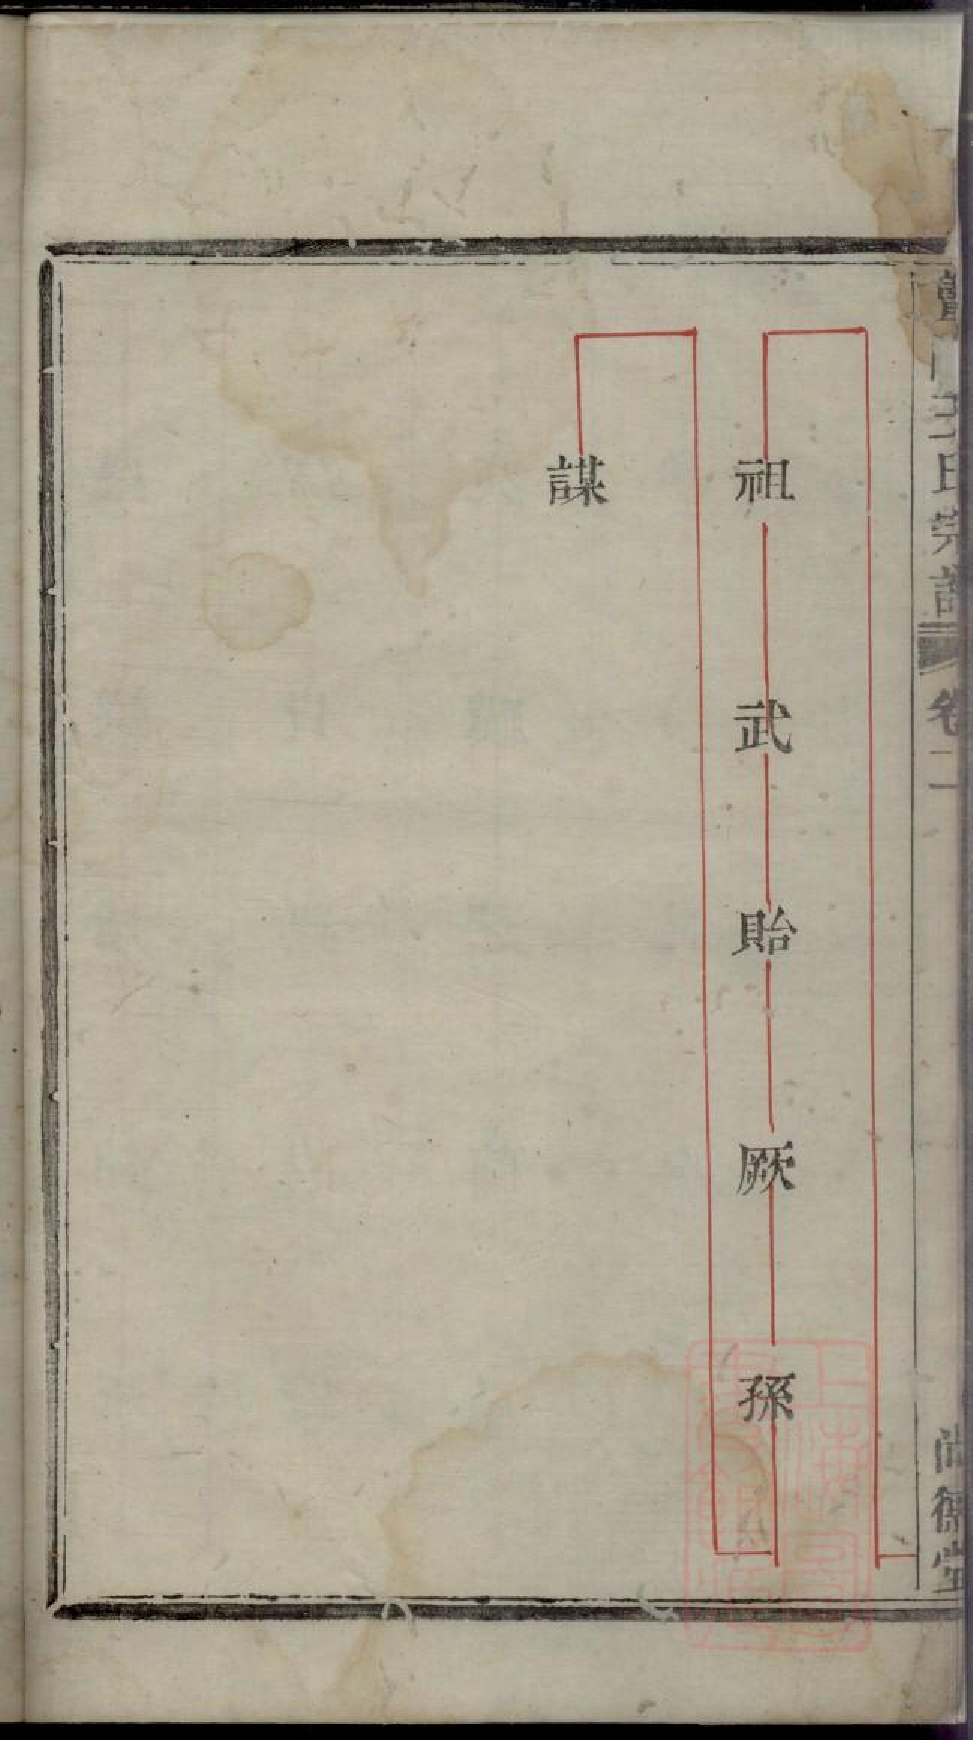 祖武貽厥孫
謀
氏宗譜
卷二
德堂